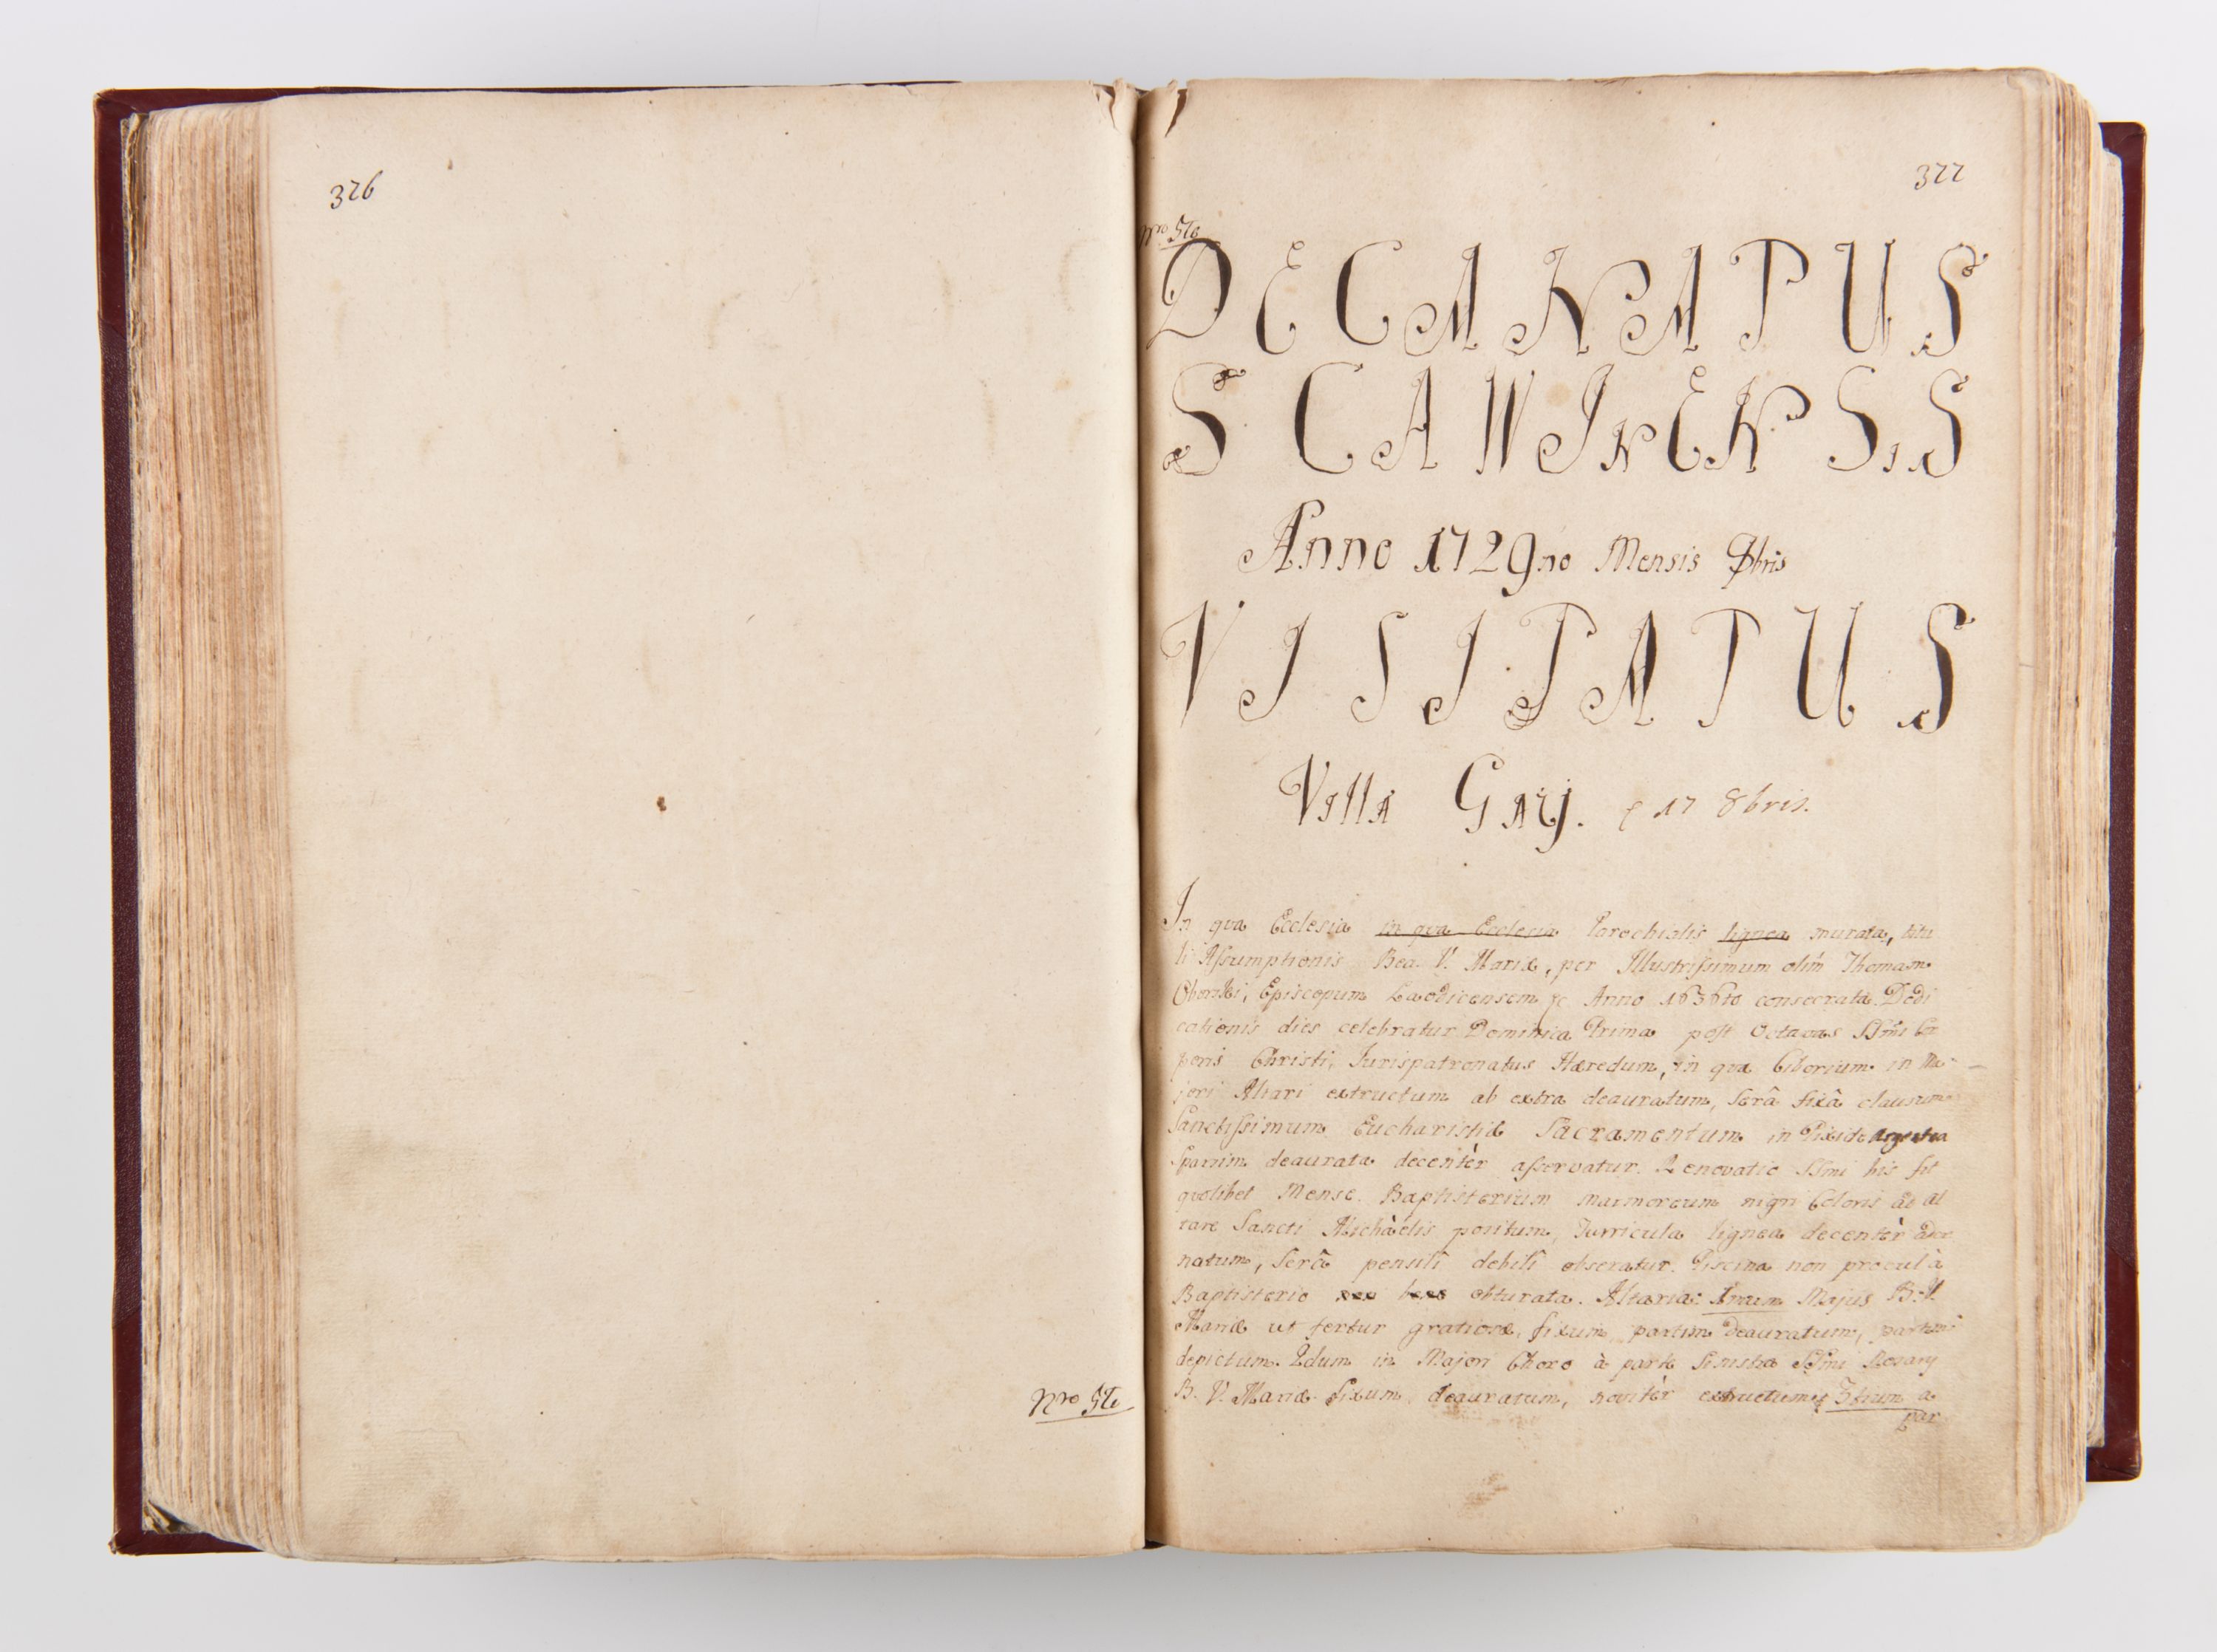 326
Nro
327
Nro
DECANATUS
SCAWINENSIS
Anno 1729no Mensis 8bris
VISITATUS
Villa Gaij. 17 8bris.
In qva Ecclesia in qva Ecclesia Parochialis lignea murata, titu
li Assumptionis Bea. V. Mariæ, per Illustrissimum olim Thomam
Oborski, Episcopum Laodicensem Anno 1636to consecrata. Dedi
cationis dies celebratur Dominica Prima post Octavas SSmi Cor
poris Christi, Jurispatronatus Hæredum, in qva Ciborium in Ma-
jori Altari extructum ab extra deauratum, Serâ fixâ clausum
Sanctissimum Eucharistiæ Sacramentum in Pixide Argentea
deaurata decentèr asservatur. Renovatio SSmi bis fit
qvolibet Mense. Baptisterium marmoreum nigri Coloris ad Al
tare Sancti Michàelis positum, Turricula lignea decentèr ador
natum, Serâ pensili debili obseratur. Piscina non procul à
Baptisterio obturata. Altaria: Unum Majus B. V.
Mariæ ut fertur gratiosæ, fixum, partim deauratum, partim
depictum. 2dum in Majori Choro à parte Sinistra SSmi Rosarij
B. V. Mariæ fixum deauratum, novitèr extructum, 3tium a
par